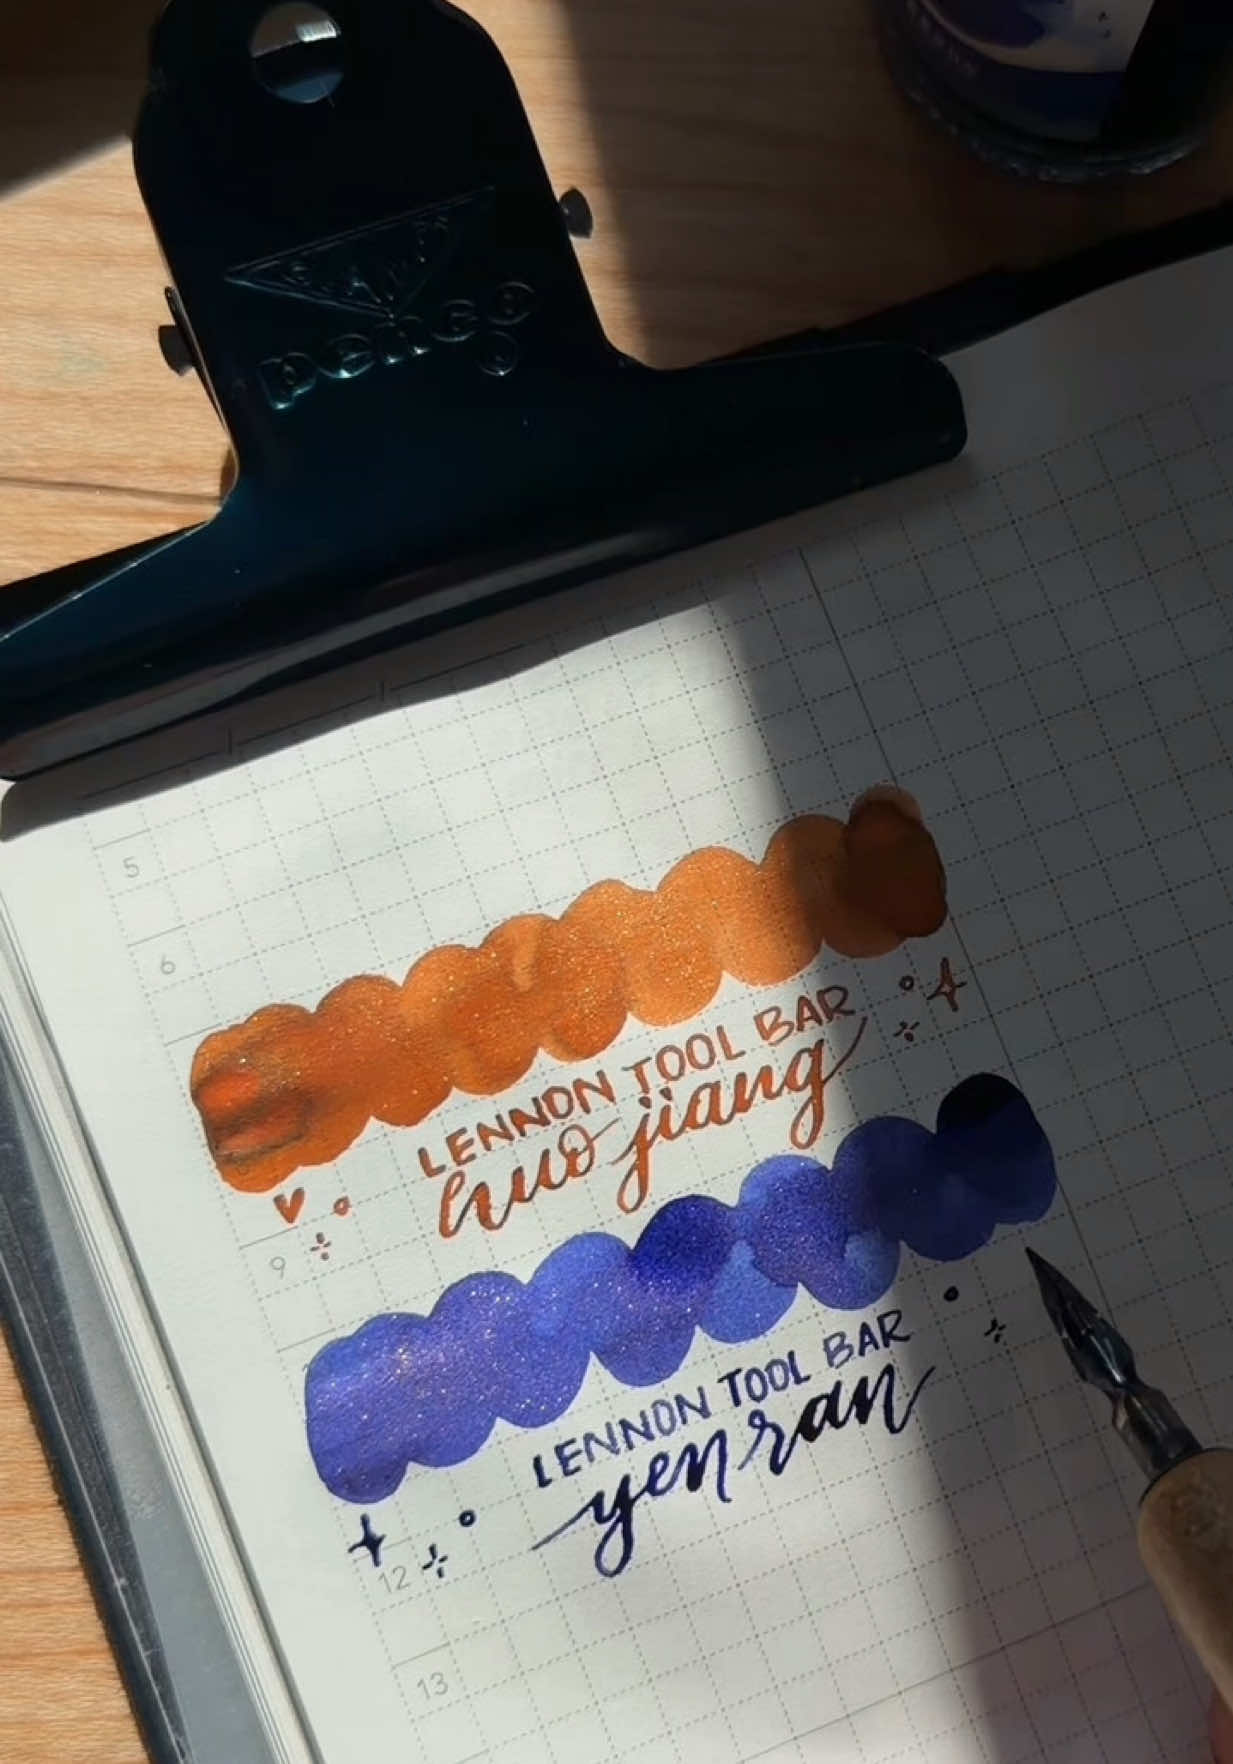 CAMP
penco
5
6
LENNON TOOL BAR
huo jiang
9
LENNON TOOL BAR
yen ran
12
13